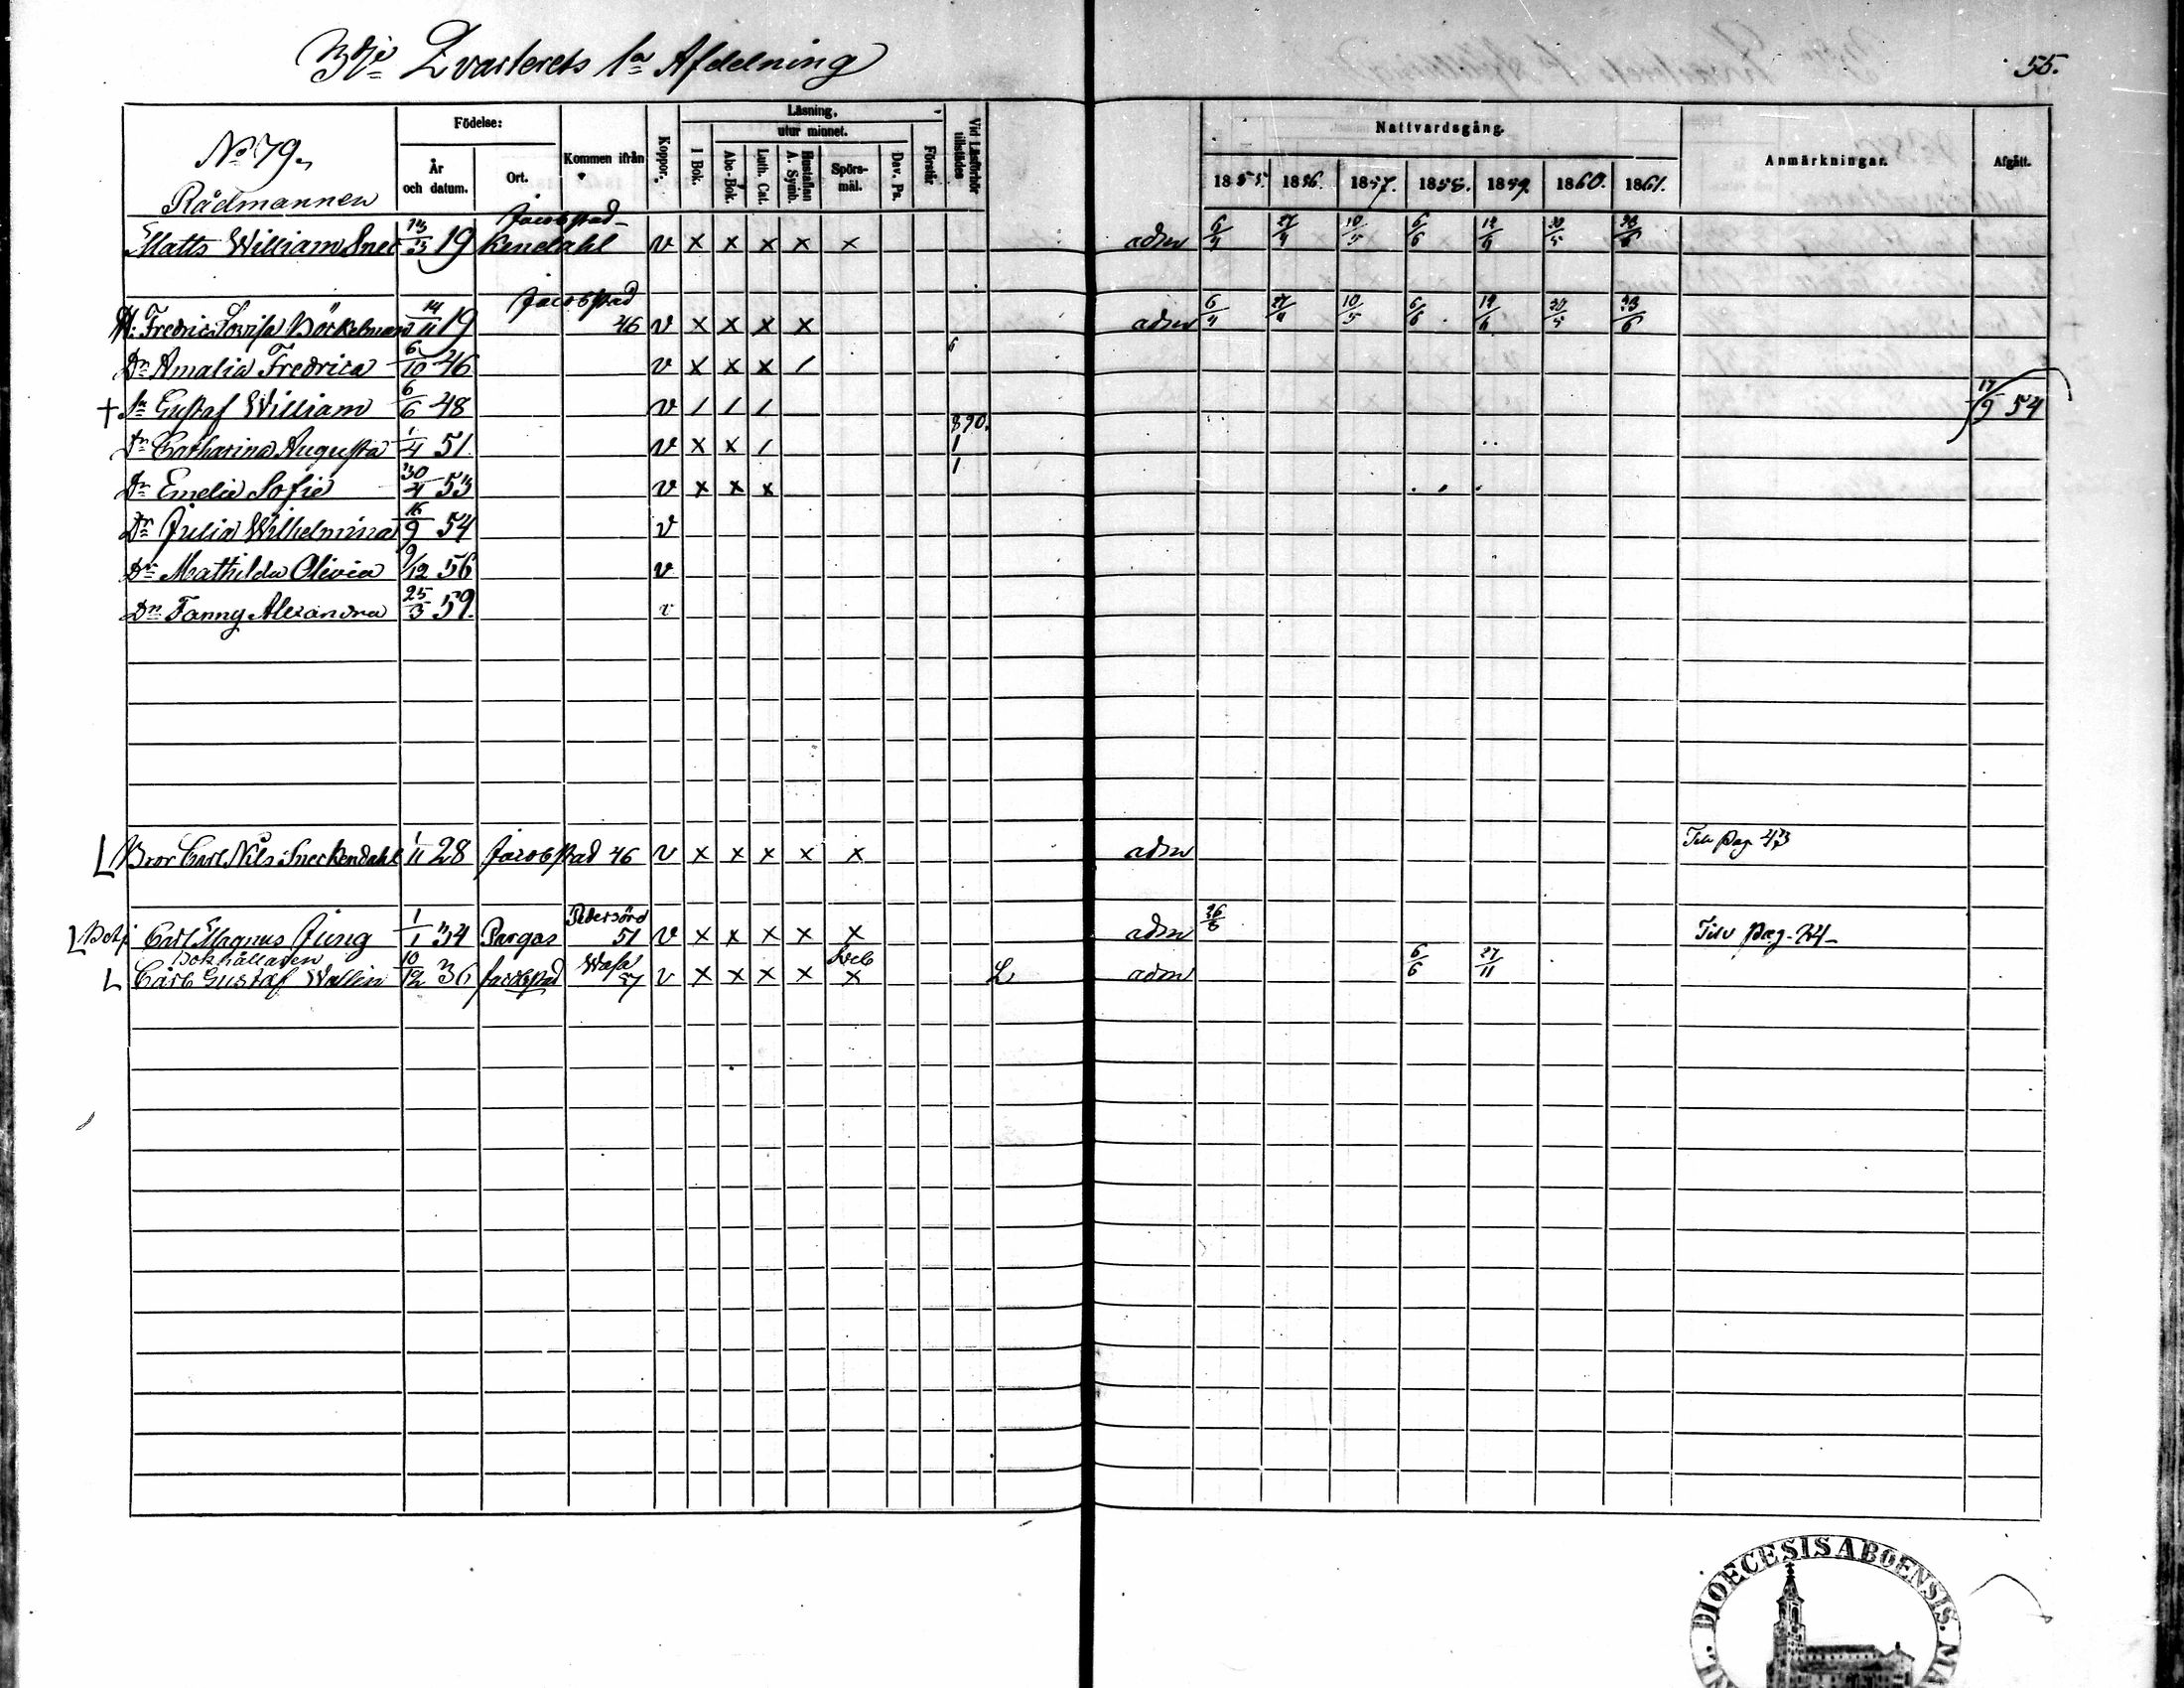 3dje Qvarterets 1a Afdelning
55.
No 79.
Rådmannen
Födelse:
År och datum.
Ort.
Kommen ifrån
Koppor.
Läsning,
utur minnet.
I Bok.
Abc-Bok.
Luth. Cat.
Hustaflan A. Symb.
Spörsmål.
Dav. Ps.
Förstår
Vid Läsförhör tillstädes
Nattvardsgång.
1855. 1856. 1857. 1858. 1859. 1860. 1861.
Anmärkningar.
Afgått.
Jacobstad
Matts William Sneckendahl 19 v x x x x x adm 6/4 27/4 10/5 6/6 12/6
Jacobstad
H: Fredrica Lovisa Böckelman 14/11 19 46 v x x x x adm 6/4 27/4 10/5 6/6 12/6
Dr Amalia Fredrica 6/10 46 v x x x / 6
† Sn Gustaf William 6/6 48 v / / / 17/9 54
890.
Dr Catharina Augusta 1/4 51 v x x / 1
Dr Emelie Sofie 30/4 53 v x x x 1
Dr Julia Wilhelmina 16/9 54 v
Dr Mathilda Olivia 9/12 56 v
Dr Fanny Alexandra 25/3 59. v
L Bror Carl Nils Sneckendahl 1/11 28 Jacobstad 46 v x x x x x adm Till Pag.
L Bokh Carl Magnus Jung 1/1 34 Pargas Pedersöre 51 v x x x x x adm Till Pag.
Bokhållaren
L Carl Gustaf Wallin 10/12 36 Jacobstad Wasa 57 v x x x x x L adm 6/6 27/11
DIOECESIS ABOENSIS.